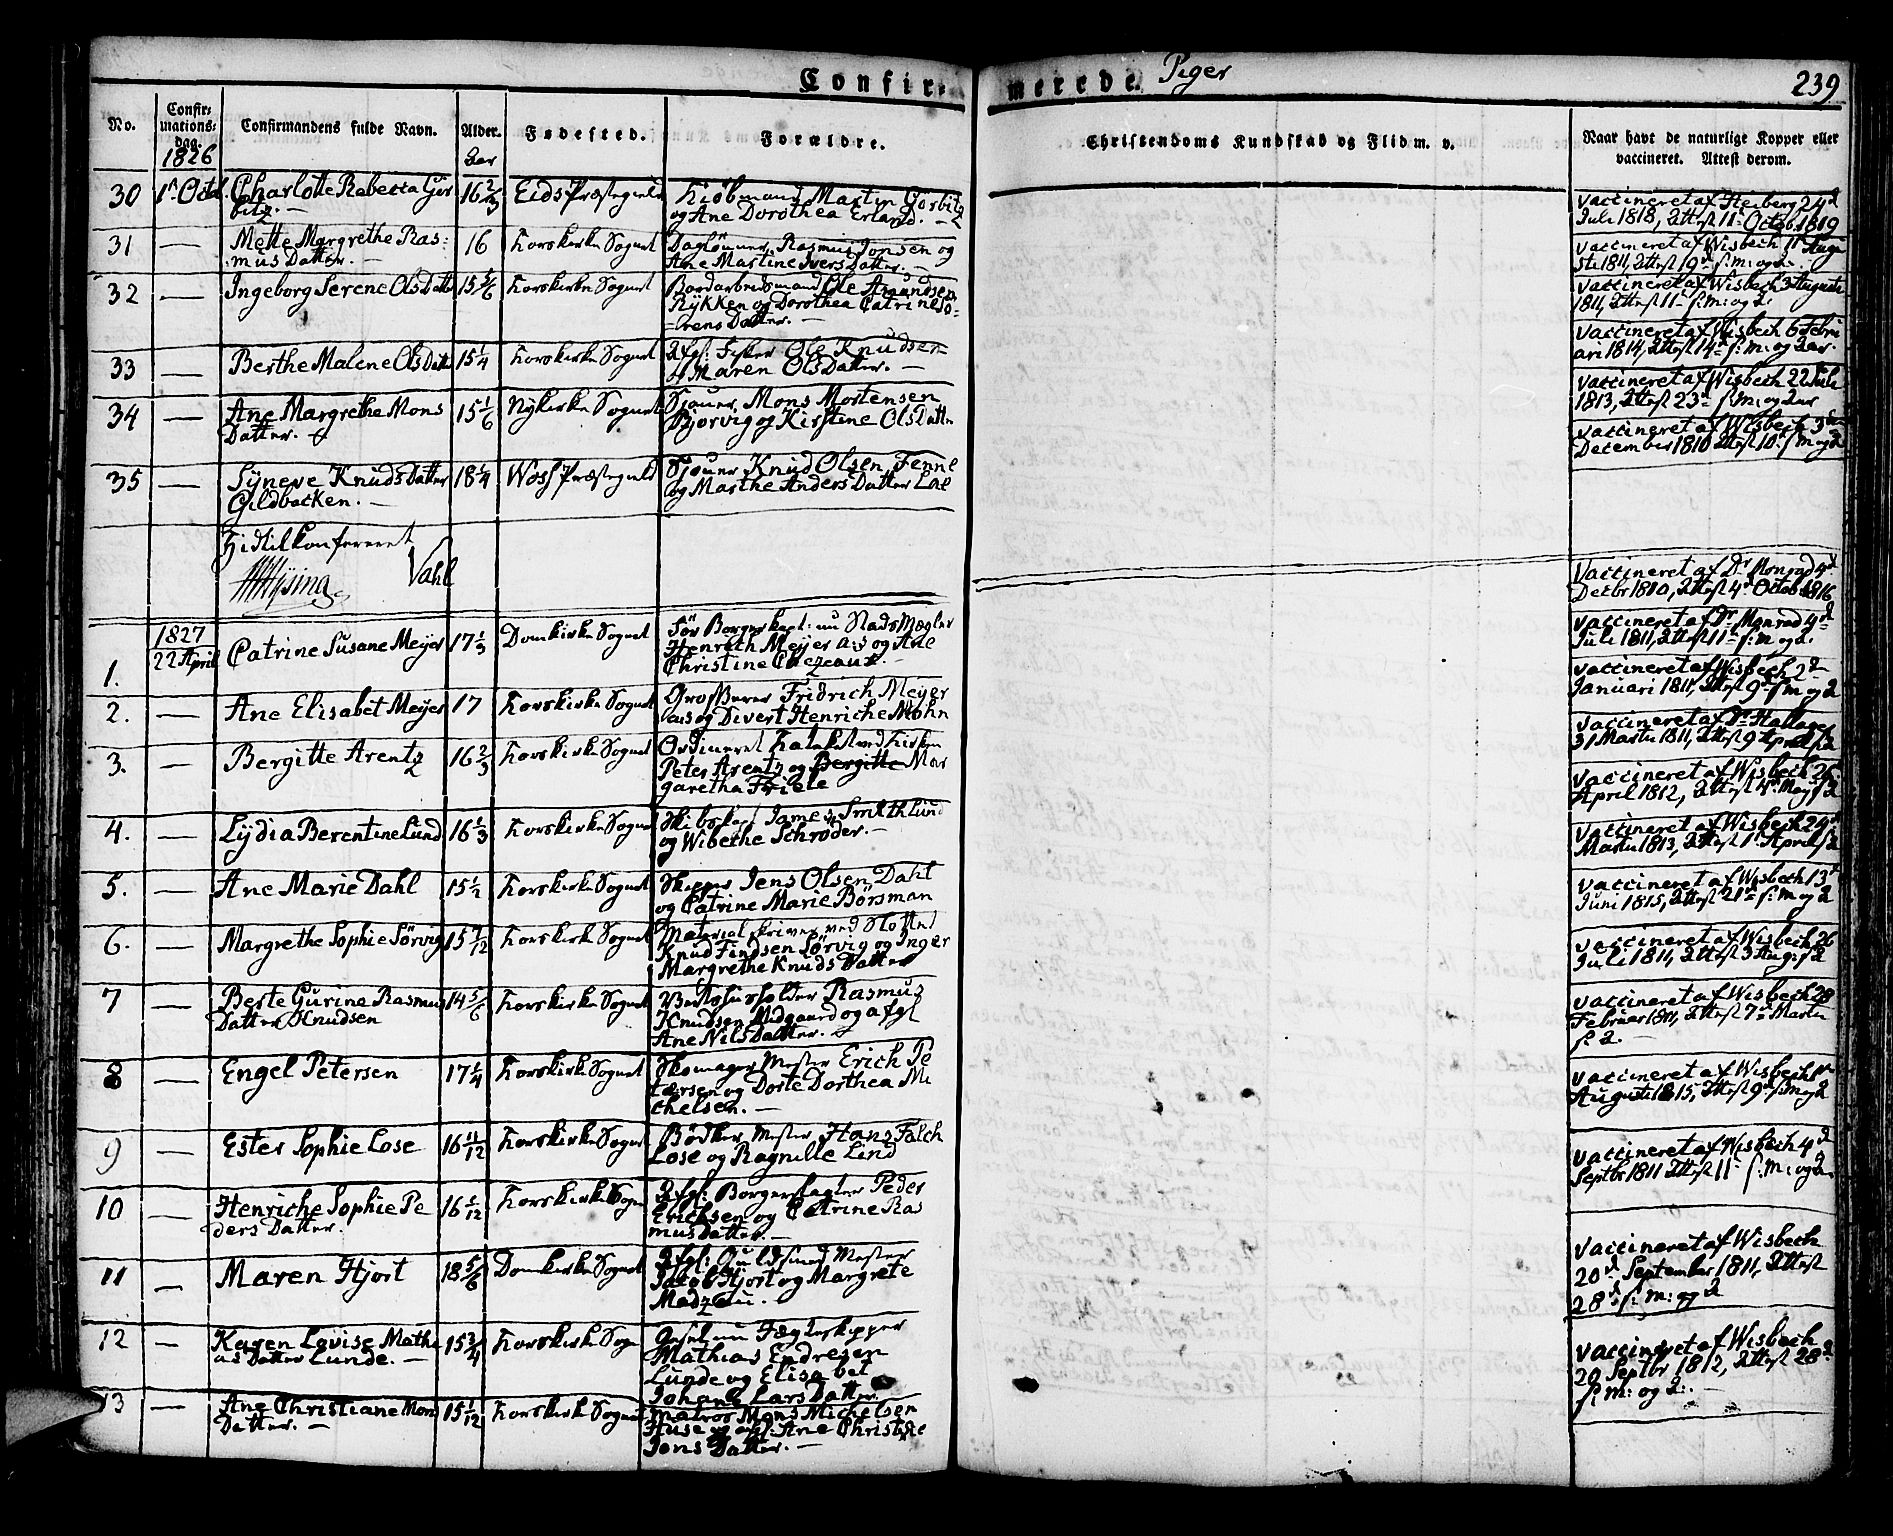 Confir=
merede
Piger
239
No.
Confir=
mations=
dag.
Confirmandens fulde Navn.
Alder.
Fødested.
Forældre.
Christendoms Kundskab og Flid m. v.
Naar havt de naturlige Kopper eller
vaccineret. Attest derom.
1826
Aar
30 1ste Octbr. Charlotte Rebecca Gör 16 2/3 Eids Præstegield Kiöbmand Martin Görbitz
bitz. — og Ane Dorothea Erland. —
vaccineret af Heiberg 24d
Juli 1818, Attest 11 Octob 1819
31 — Mette Margrethe Ras= 16 Korskirke Sognet Daglönner Rasmus Jonsen og
=mus Datter. — Ane Martine Ivers Datter. —
vaccineret af Wisbech 11 Augu
sti 1811, Attest 19d s: m: og A.
32 — Ingeborg Serene Ols Datter 15 5/6 Korskirke Sognet Bordarbeidsmand Ole Amundsen
Rykken og Dorothea Catrine Sö=
=rens Datter. —
vaccineret af Wisbech 3 Augusti
1811, Attest 11 s: m: og A.
33 — Berthe Malene Ols Datter 15 1/4 Korskirke Sognet Afg: Fisker Ole Knudsen
& Maren Ols Datter. —
vaccineret af Wisbech 6 Febru
ari 1814, Attest 14 s: m: og Aar
34 — Ane Margrethe Mons 15 1/6 Nykirke Sognet Sjouer Mons Mortensen
Datter. — Bjorvig og Kirstine Ols Datter
vaccineret af Wisbech 22 Juli
1813, Attest 23 s: m: og Aar
35 — Synneve Knuds Datter 18 1/4 Woss Præstegield Sjouer Knud Olsen Fenne
Gildbacken. — og Marthe Anders Datter Lae
vaccineret af Wisbech 3
December 1810 Attest 10 s: m og A
Hidtil konfereret
Hysing
Vahl
1827
1. 22 April Catrine Susane Meyer 17 1/3 Domkirke Sognet För Borgerkapt: nu Stads Mægler
Henrich Meyer a:s og Ane
Christine Cazeaux. —
vaccineret af Dr Monrad 4d
Decbr 1810, Attest 4 Octob 1816
2. — Ane Elisabet Meyer 17 Korskirke Sognet Grosserer Fridrich Meyer
a:s og Divert Henriche Mohn
vaccineret af Dr Monrad 4d
Juli 1811, Attest 11 s: m: og A.
3. — Bergitte Arentz 16 2/3 Korskirke Sognet Ordineret Kateket ved Kirken
Peter Arentz og Bergitte Mar
garetha Friele
vaccineret af Wisbech 2d
Januari 1811, Attest 9 s: m og A
4. — Lydia Berentine Lund 16 1/3 Korskirke Sognet Skibskapt James Smith Lund
og Wibethe Schröder. —
vaccineret af Dr Hallager
31 Martii 1811, Attest 9 April s A
5. — Ane Marie Dahl 15 1/2 Korskirke Sognet Skipper Jens Olsen Dahl
og Catrine Marie Börsman
vaccineret af Wisbech 26
April 1812, Attest 4 May s A
6. — Margrethe Sophie Sörvig 15 7/12 Korskirke Sognet Materialskriver ved Slottet
Knud Findsen Sörvig og Inger
Margrethe Knuds Datter
vaccineret af Wisbech 24
Martii 1813, Attest 1 April s A
7 — Berte Gurine Rasmus 14 5/6 Korskirke Sognet Vertshusholder Rasmus
Datter Knudsen Knudsen Midgaard og afgl
Ane Nils Datter. —
vaccineret af Wisbech 13
Juni 1815, Attest 21 s: m og A
8 — Engel Petersen 17 1/4 Korskirke Sognet Skomager Mester Erich Pe
tersen og Dorte Dorthea Mi
chelsen. —
vaccineret af Wisbech 26
Juli 1811, Attest 3 Aug: s A
9 — Ester Sophie Lose 16 11/12 Korskirke Sognet Bödker Mester Hans Falch
Lose og Ragnille Lind
vaccineret af Wisbech 28
Februar 1811, Attest 7 Martii
s: A. —
10 — Henriche Sophie Pe 16 1/12 Korskirke Sogn Afgl: Borgerslagter Peder
ders Datter. Ericksen og Catrine Ras
mus Datter. —
vaccineret af Wisbech 1
Augusti 1815, Attest 9 s: m og A
11 — Maren Hjort 18 5/6 Domkirke Sognet Afgl: Guldsmed Mester
Jacob Hjort og Margrete
Madzeau.
vaccineret af Wisbech 4d
Septbr 1811 Attest 11 s: m: og A
12 — Karen Lovise Mathi 15 3/4 Korskirke Sogn Gesel nu Jægteskipper
as Datter Lunde. — Mathias Endresen
Lunde og Elisabet
Johane Lars Datter.
vaccineret af Wisbech
20d September 1811, Attest
28d s: m: og A
13 — Ane Christiane Mons 15 1/12 Korskirke Sognet Matros Mons Michelsen
Datter. — Huse og afgl: Ane Christine
Jons Datter. —
vaccineret af Wisbech
20 Septbr 1812, Attest 28d
s: m: og A: —